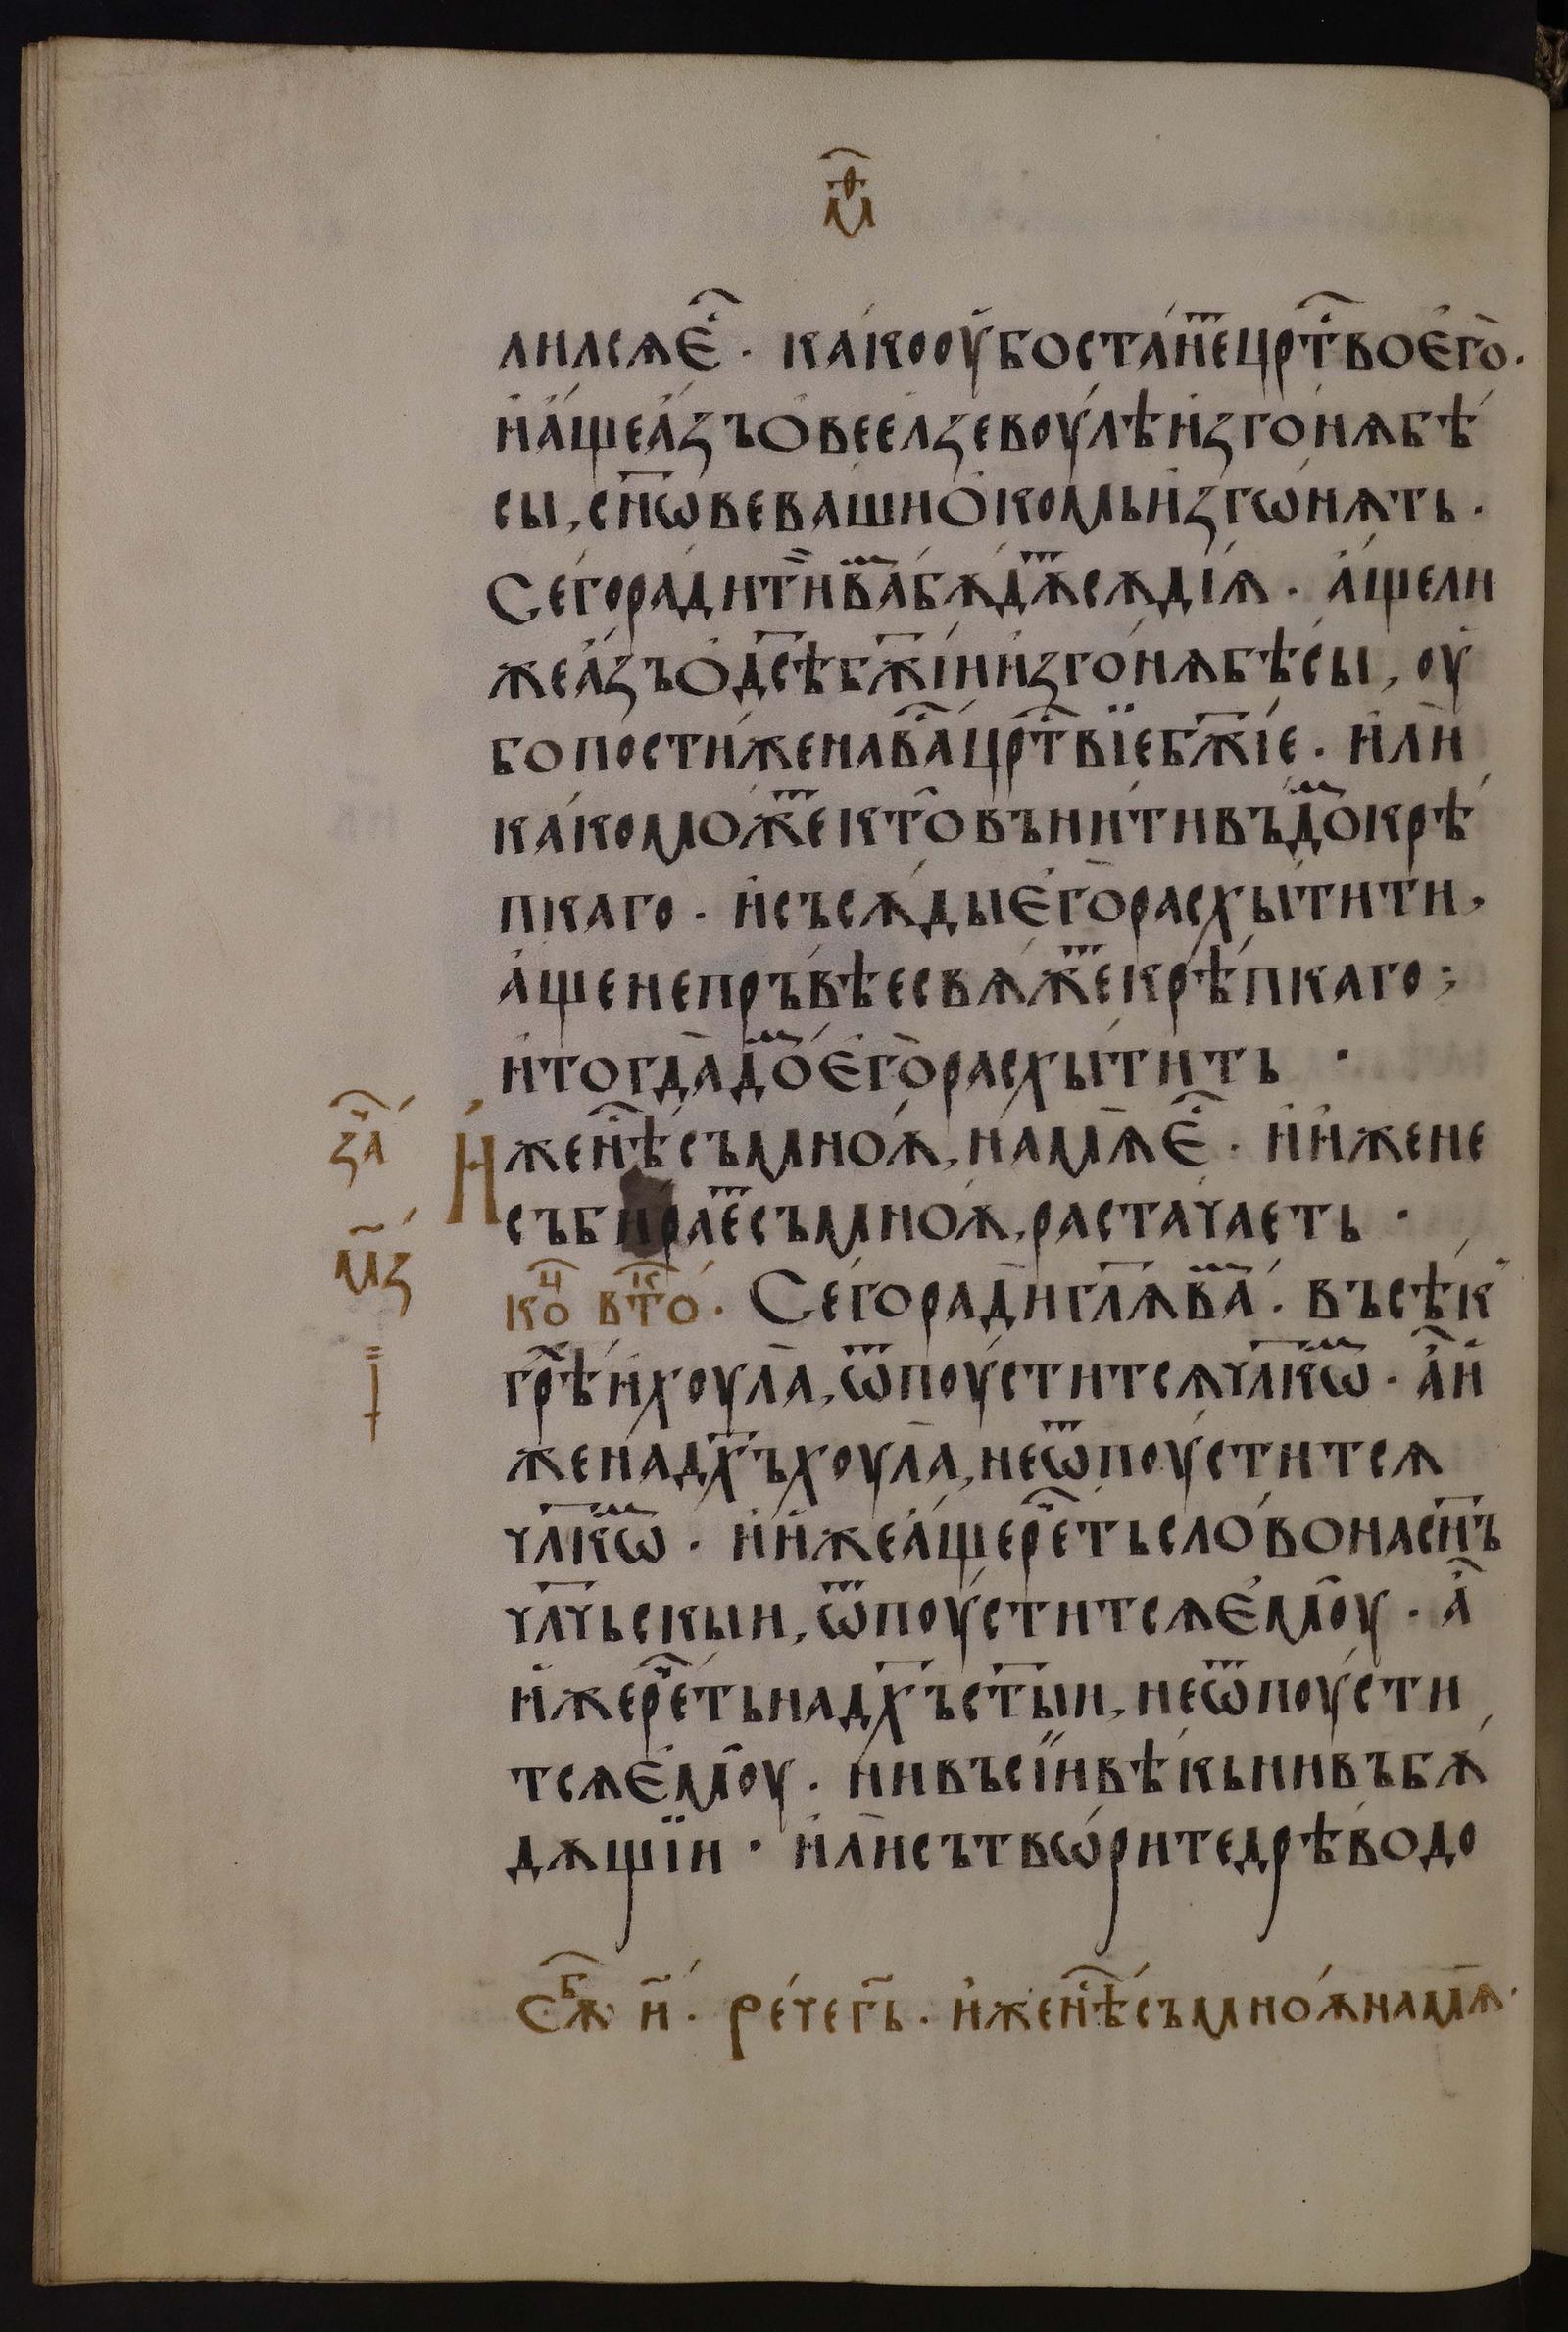 м҃ѳ
лилсѧ є҆҃ . ка́ко оу҆бо ста́нⷮе црⷭ҇тво є҆го̀ .
и҆ а҆́ще а҆́зъ о҆ веелзевоу́лѣ и҆зго́нѧ бѣ́
сы , сн҃ѡве ваши о҆ комь и҆згѡ́нѧть .
Сего̀ ра́ди ті́и ваⷨ бѫ́дѫⷮ сѫдїѫ̀ . а҆́ще ли
же а҆́зъ о҆ дс҃ѣ бж҃їи и҆зго́нѧ бѣ́сы , оу҆
бо пости́же на ваⷭ црⷭ҇твїе бж҃їе . и҆лѝ
ка́ко мо́жеⷮ кто̀ въни́ти въ доⷨ крѣ́
пкаго . и҆ съсѫ́ды є҆го̀ расхы́тити ,
а҆́ще не пръ́вѣе свѧ́жеⷮ крѣ́пкаго ;
и҆ тогда̀ доⷨ є҆го̀ расхы́тить .
за҆ⷱ И҆́же нⷭ҇ѣ съ мно́ѫ , на мѧ̀ єⷭ҇ . и҆ и҆́же не
м҃з събираеⷮ съ мно́ѫ , растачаеть .
коⷰ втоⷦ . Сего̀ ра́ди гл҃ѧ ваⷨ . въсѣ́к
грѣⷯ и҆ хоула̀ , ѿпоу́стит сѧ чл҃кѡⷨ . а҆ и҆́
же на дх҃ъ хоула̀ , не ѿпоу́стит сѧ
чл҃кѡⷨ . и҆ и҆́же а҆́ще реⷱ҇ть сло́во на сн҃ъ
чл҃чьскыи , ѿпоу́стит сѧ є҆моу̀ . а҆
и҆́же реⷱ҇ть на дх҃ъ ст҃ыи , не ѿпоу́сти
т сѧ є҆моу̀ . ни въ сїи вѣ́кь ни въ бѫ́
дѫщїи . и҆лѝ сътвѡ́рите дрѣ́во до
Сѫⷠ и҃ . рече гь҃ . и҆́же нⷭ҇ѣ съ мно́ѫ на мѧ̀ .